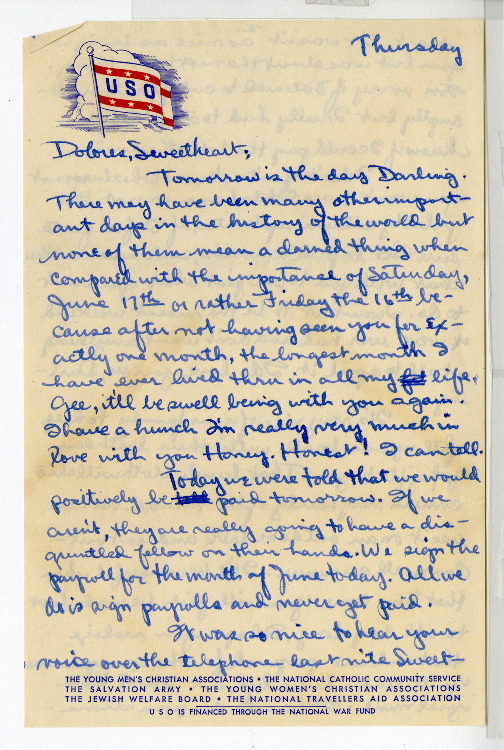 Thursday
USO
Dolores, Sweetheart;
Tomorrow is the day Darling.
There may have been many other import-
ant days in the history of the world but
none of them mean a darned thing when
compared with the importance of Saturday,
June 17th or rather Friday the 16th be-
cause after not having seen you for ex-
actly one month, the longest month I
have ever lived thru in all my life.
Gee, it'll be swell being with you again.
I have a hunch I'm really very much in
love with you Honey. Honest! I can tell.
Today we were told that we would
positively be paid tomorrow. If we
aren't, they are really going to have a dis-
gruntled fellow on their hands. We sign the
payroll for the month of June today. All we
do is sign payrolls and never get paid.
It was so nice to hear your
voice over the telephone last nite Sweet-
THE YOUNG MEN'S CHRISTIAN ASSOCIATIONS • THE NATIONAL CATHOLIC COMMUNITY SERVICE
THE SALVATION ARMY • THE YOUNG WOMEN'S CHRISTIAN ASSOCIATIONS
THE JEWISH WELFARE BOARD • THE NATIONAL TRAVELLERS AID ASSOCIATION
USO IS FINANCED THROUGH THE NATIONAL WAR FUND